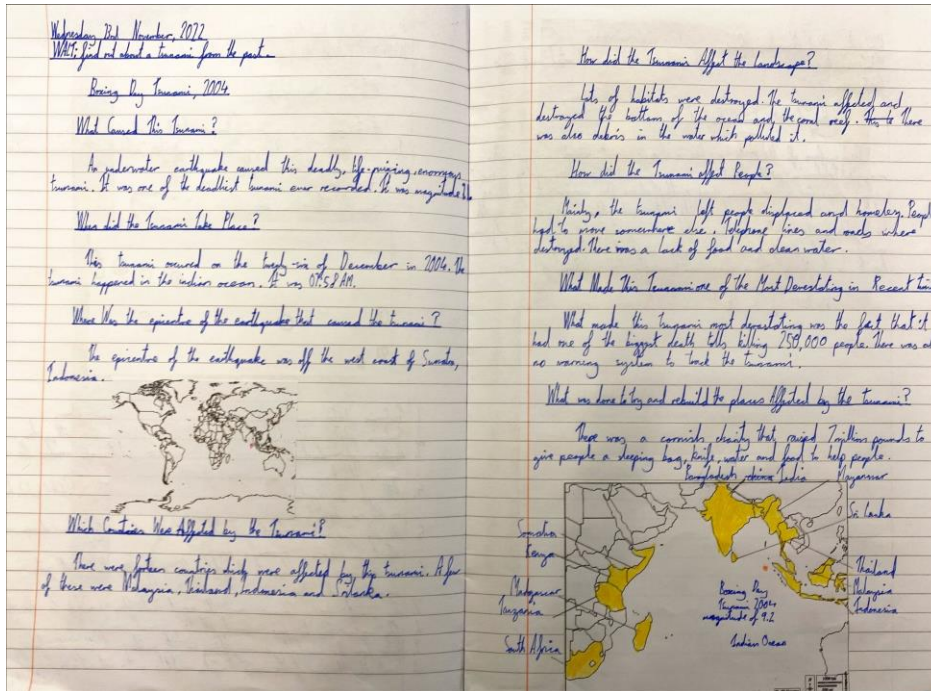 Wednesday 23rd November, 2022
WALT: find out about a tsunami from the past.
Boxing Day Tsunami, 2004
What Caused This Tsunami?
An underwater earthquake caused this deadly, life-ruining, enormous
tsunami. It was one of the deadliest tsunami ever recorded. It was magnitude
When did the Tsunami Take Place?
This tsunami occured on the twenty-six of December in 2004. The
tsunami happened in the indian ocean. It was 07:58AM.
Where Was the epicentre of the earthquake that caused the tsunami?
The epicentre of the earthquake was off the west coast of Sumatra,
Indonesia.
Which Countries Were Affected by the Tsunami?
There were forteen countries which were affected by this tsunami. A few
of these were Malaysia, Thailand, Indonesia and Sri Lanka.
How did the Tsunamis Affect the landscape?
Lots of habitats were destroyed. The tsunami affected and
destroyed the bottom of the ocean and the coral reef. This is There
was also debris in the water which polluted it.
How did the Tsunami affect People?
Mainly, the tsunami left people displaced and homeless. People
had to move somewhere else. Telephone lines and roads where
destroyed. There was a lack of food and clean water.
What Made This Tsunami one of the Most Devestating in Recent
What made this tsunami most devastating was the fact that it
had one of the biggest death tolls killing 250,000 people. There was
no warning system to track the tsunami.
What was done to try and rebuild the places Affected by the tsunami?
There was a cornish charity that raised 7 million pounds to
give people a sleeping bag, knife, water and food to help people.
Bangladesh India Myanmar
Sri Lanka
Somalia
Kenya
Thailand
Madagascar
Malaysia
Tanzania
Indonesia
Boxing Day
Tsunami 2004
magnitude of 9.2
South Africa
Indian Ocean